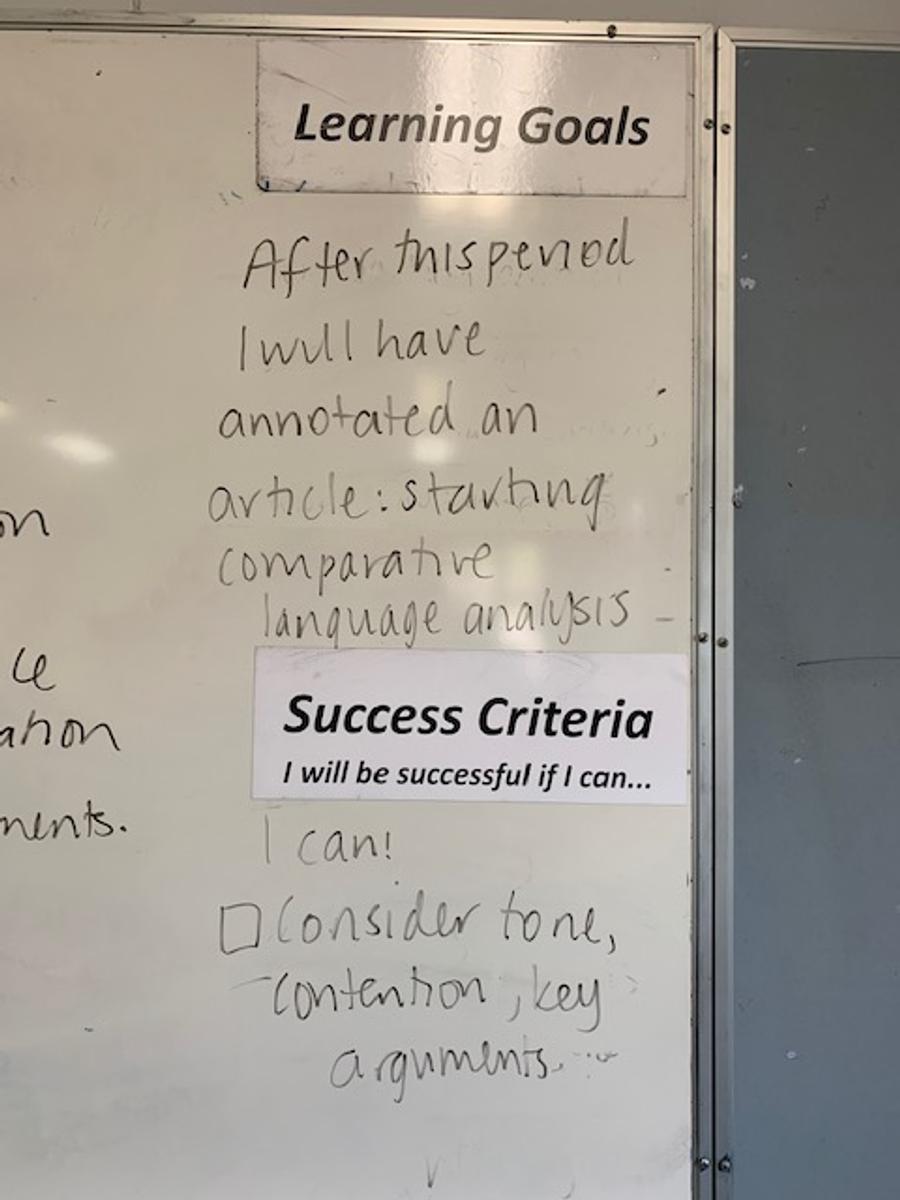 Learning Goals
After this period
I will have
annotated an
article: starting
comparative
language analysis
Success Criteria
I will be successful if I can...
I can!
Consider tone,
contention, key
arguments.
on
ce
ation
ments.